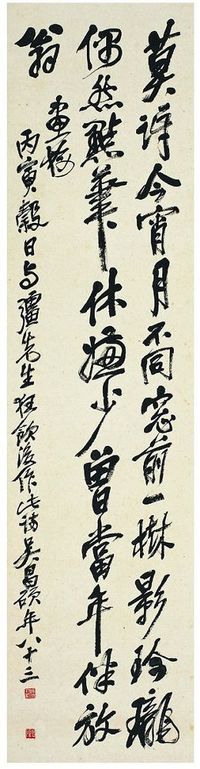 莫訝今宵月不同窓前一樹影玲瓏
偶然點筆休嫌少曾當年伴放
翁 畫梅
丙寅穀日与彊先生狂飲後作此詩吴昌碩年八十三